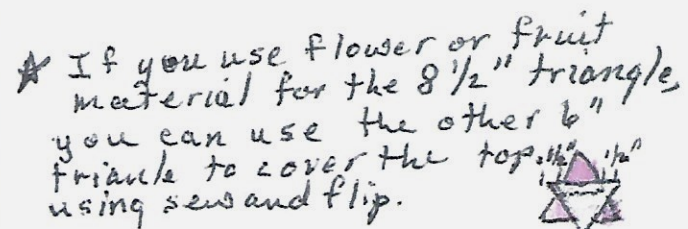 ☆ If you use flower or fruit
material for the 8 1/2" triangle,
you can use the other 6"
triancle to cover the top. 1 1/2" 1 1/2"
using sew and flip.